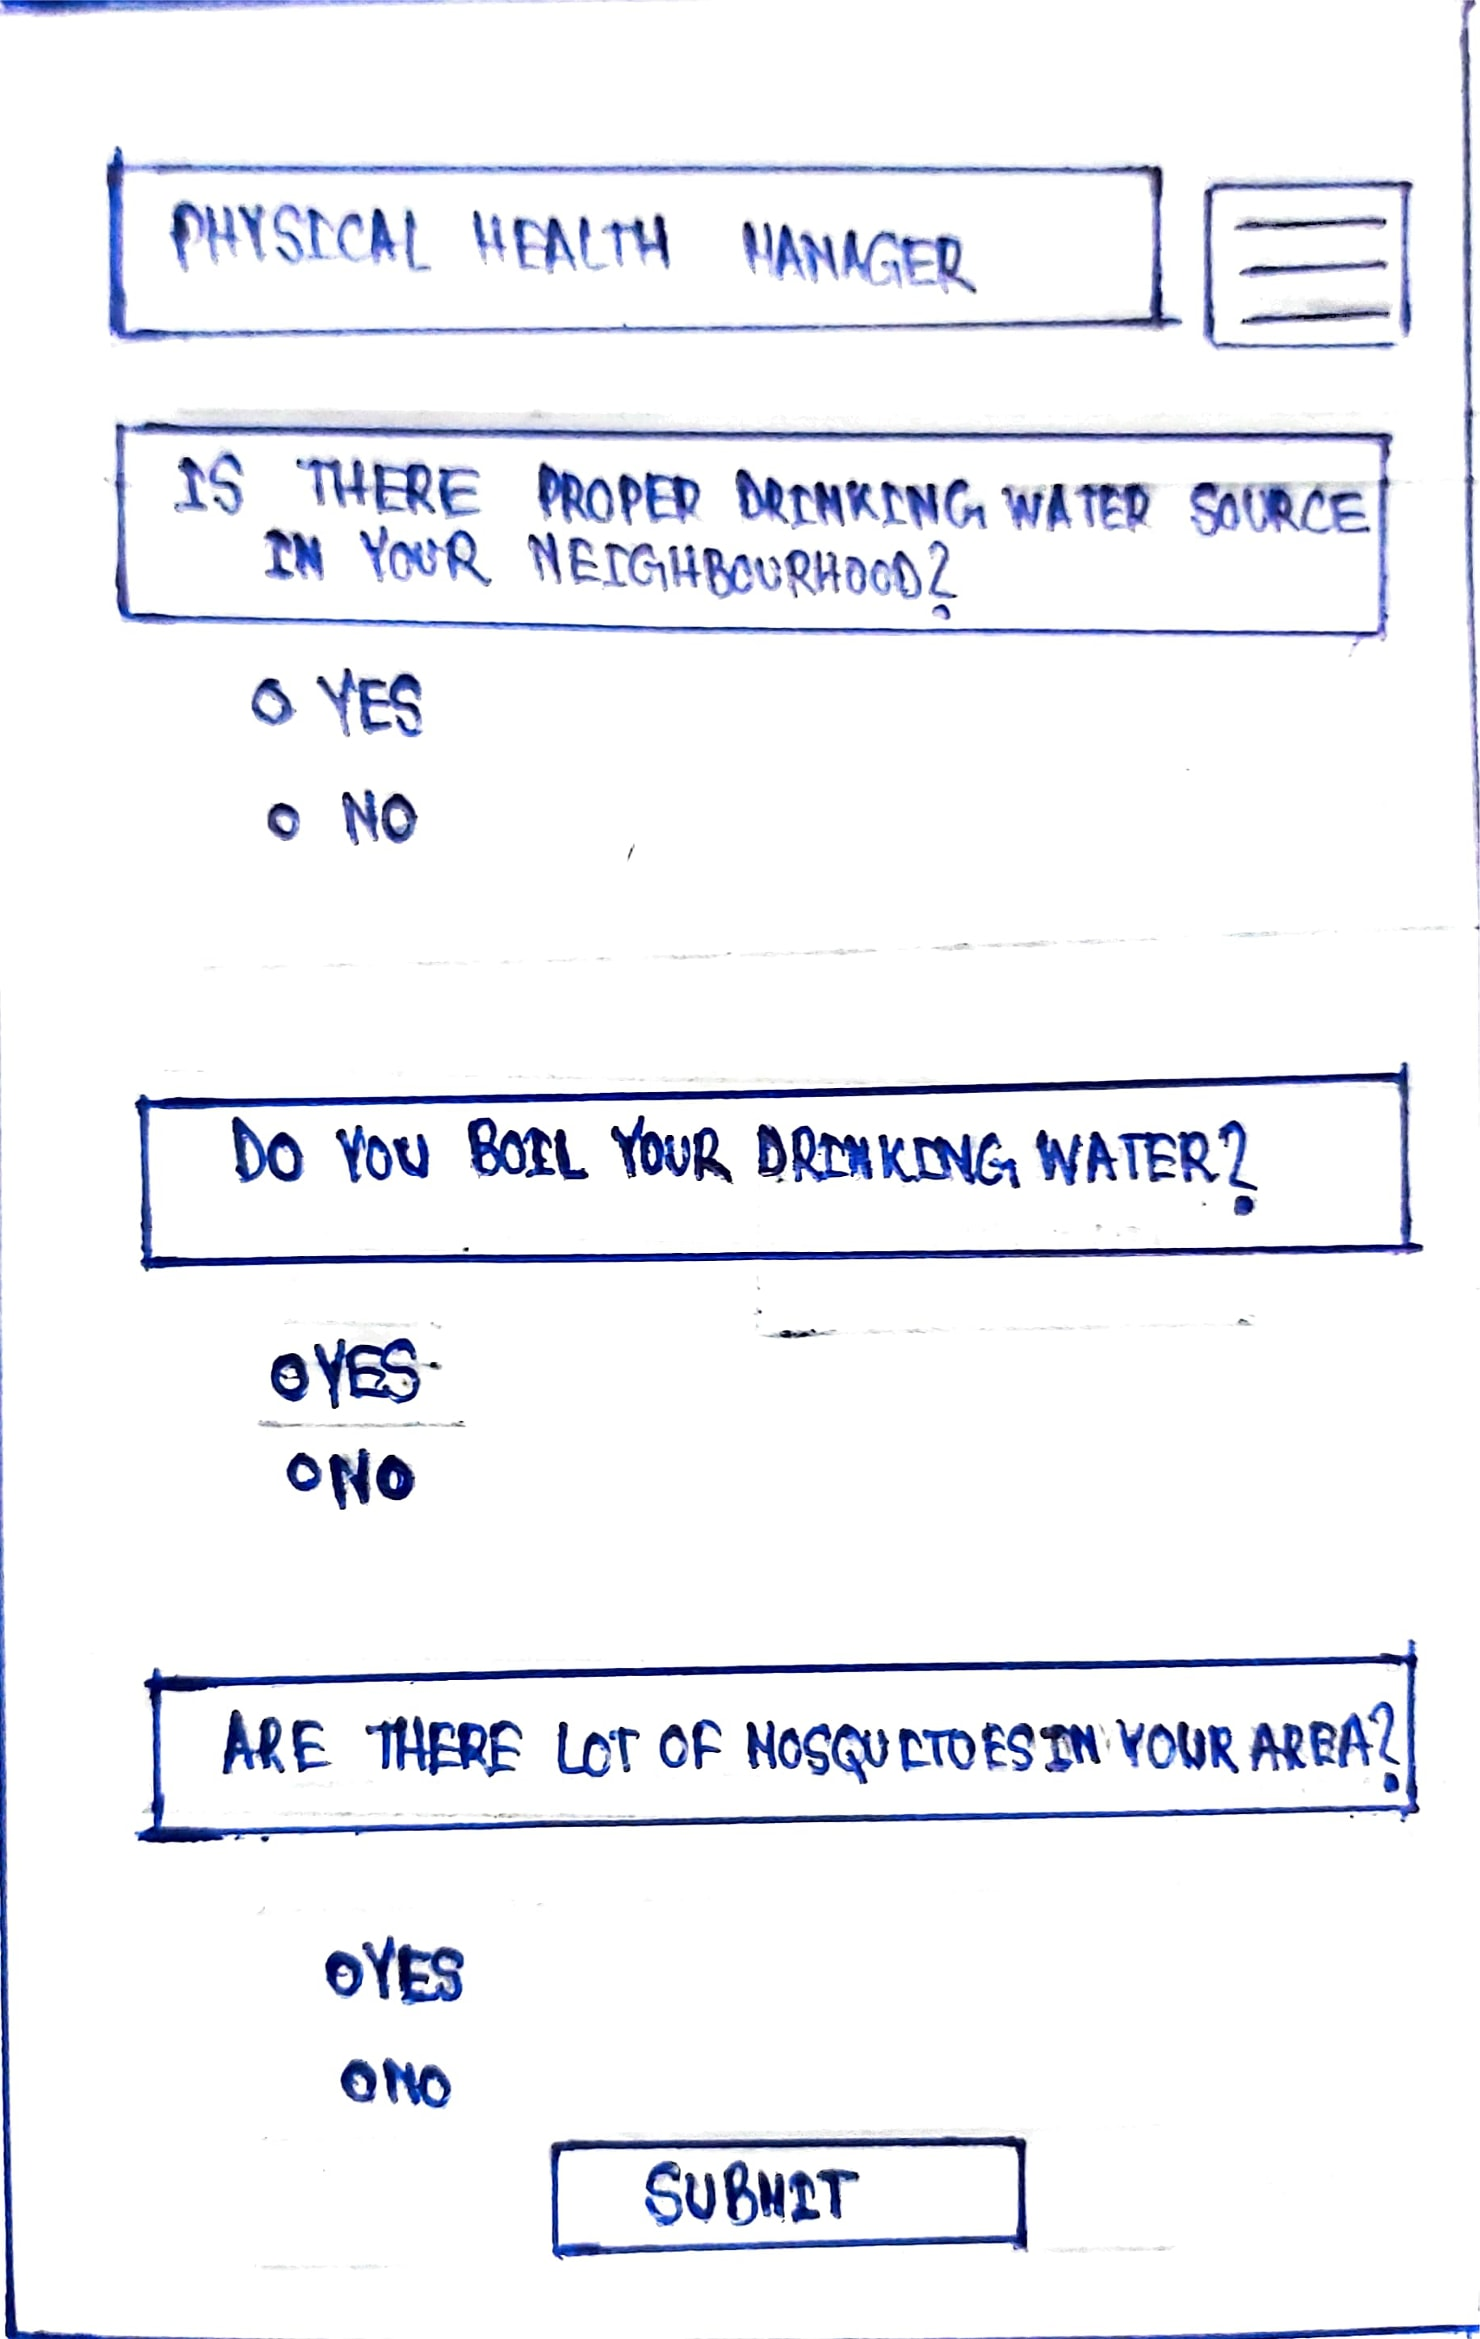 PHYSICAL HEALTH MANAGER
IS THERE PROPER DRINKING WATER SOURCE
IN YOUR NEIGHBOURHOOD?
O YES
O NO
DO YOU BOIL YOUR DRINKING WATER?
O YES
O NO
ARE THERE LOT OF MOSQUITOES IN YOUR AREA?
O YES
O NO
SUBMIT